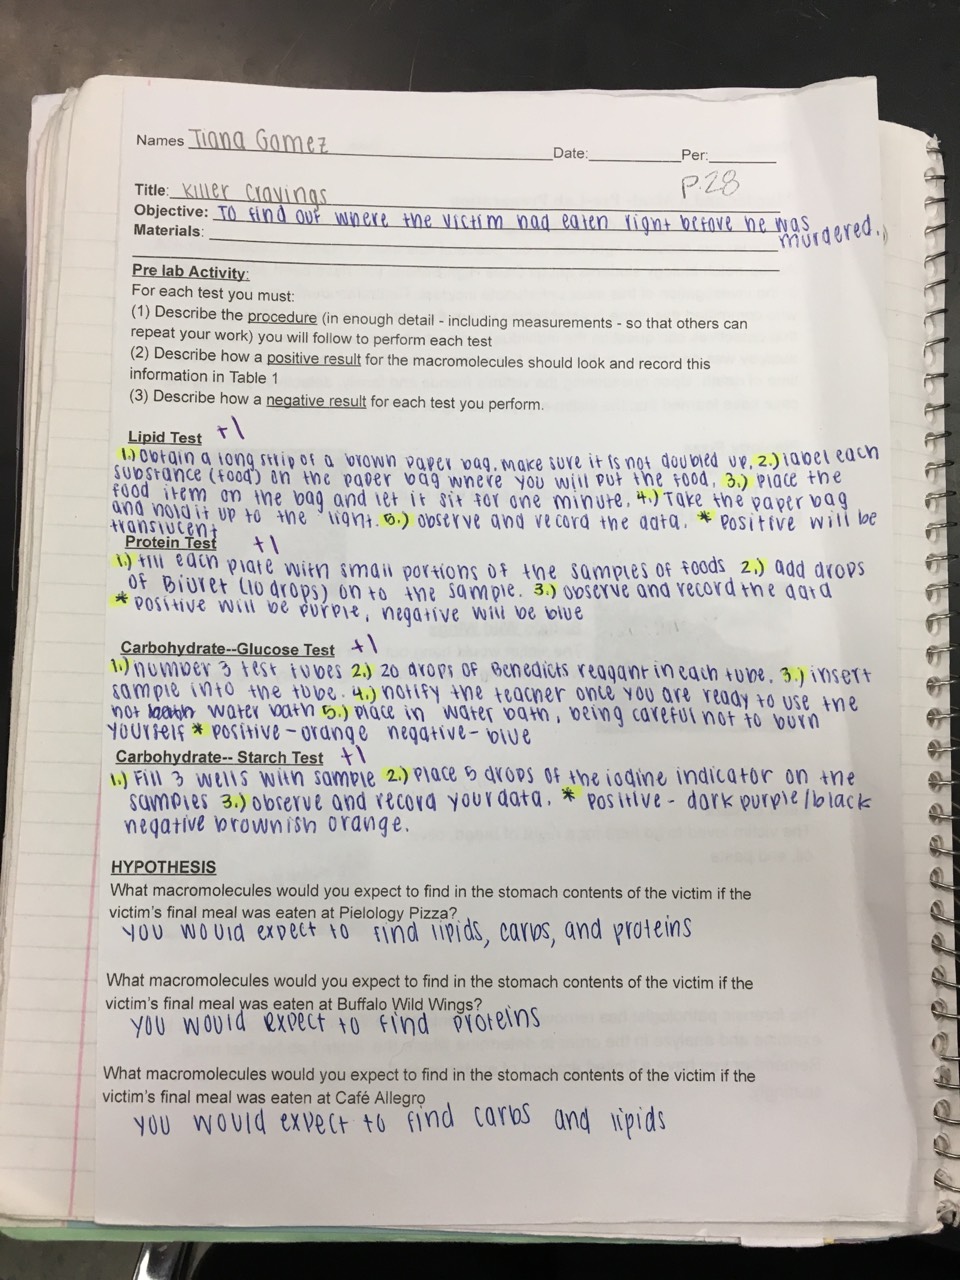 Names Tiana Gomez Date: Per:
p.28
Title: Killer Cravings
Objective: To find out where the victim had eaten right before he was murdered.
Materials:
Pre lab Activity:
For each test you must:
(1) Describe the procedure (in enough detail - including measurements - so that others can
repeat your work) you will follow to perform each test
(2) Describe how a positive result for the macromolecules should look and record this
information in Table 1
(3) Describe how a negative result for each test you perform.
Lipid Test +1
1.) Obtain a long strip of a brown paper bag. Make sure it is not doubled up. 2.) label each
substance (food) on the paper bag where you will put the food. 3.) Place the
food item on the bag and let it sit for one minute. 4.) Take the paper bag
and hold it up to the light. 5.) observe and record the data. * Positive will be
translucent
Protein Test +1
1.) fill each plate with small portions of the samples of foods 2.) add drops
of Biuret (10 drops) on to the sample. 3.) observe and record the data
* positive will be purple, negative will be blue
Carbohydrate--Glucose Test +1
1.) number 3 test tubes 2.) 20 drops of Benedicts reagant in each tube. 3.) insert
sample into the tube. 4.) notify the teacher once you are ready to use the
hot water bath 5.) Place in water bath, being careful not to burn
yourself * positive - orange negative - blue
Carbohydrate-- Starch Test +1
1.) Fill 3 wells with sample 2.) Place 5 drops of the iodine indicator on the
samples 3.) observe and record your data. * Positive - dark purple/black
negative brownish orange.
HYPOTHESIS
What macromolecules would you expect to find in the stomach contents of the victim if the
victim's final meal was eaten at Pielology Pizza?
you would expect to find lipids, carbs, and proteins
What macromolecules would you expect to find in the stomach contents of the victim if the
victim's final meal was eaten at Buffalo Wild Wings?
you would expect to find proteins
What macromolecules would you expect to find in the stomach contents of the victim if the
victim's final meal was eaten at Café Allegro
you would expect to find carbs and lipids